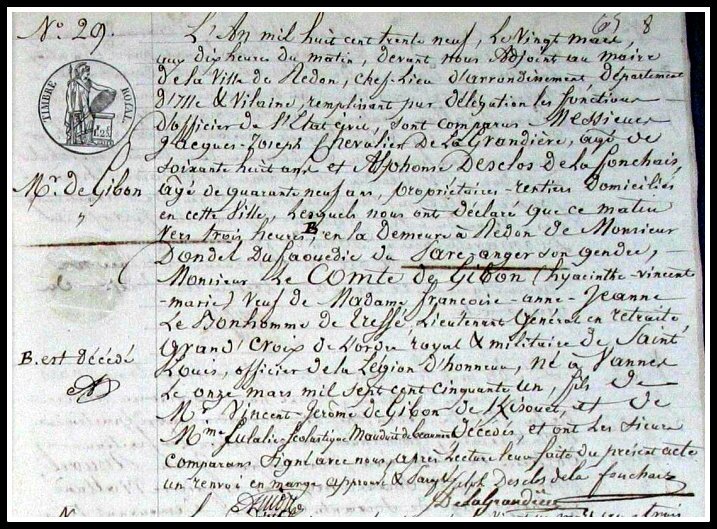 N° 29.
65 8
L'An mil huit cent trente neuf, le Vingt mars,
aux dix heures du matin, devant nous Adjoint au maire
de la Ville de Redon, chef-Lieu d'arrondissement département
d'Ille & Vilaine, remplissant par délégation les fonctions
d'officier de l'Etat Civil, sont comparus Messieurs
Jacques-Joseph Chevalier De La Grandière, agé de
soixante huit ans et Alphonse Desclos de la fonchais
agé de quarante neuf ans, propriétaires-rentiers domiciliés
en cette Ville, Lesquels nous ont déclaré que ce matin
vers trois heures, B en la Demeure à Redon de Monsieur
Dondel Du faouedic du Sarc anger son gendre,
Monsieur Le Comte de Gibon (hyacinthe-vincent
marie) Veuf de Madame Francoise-anne-Jeanne
Le Bonhomme de Tressé, Lieutenant Général en retraite
Grand' Croix de l'ordre royal & militaire de Saint
Louis, officier de la Légion D'honneur, né à Vannes
Le onze mars mil sept cent cinquante un, fils de
Mr. Vincent-Jerome de Gibon de Kisouet, et de
Mme Eulalie-Scholastique Mauduit de Décédés, et ont les Sieurs
comparans Signé avec nous, après Lecture leur faite du présent acte
un renvoi en marge approuvé Desclos de la fonchais
De La Grandière
TIMBRE ROYAL
Mr. de Gibon
"
B. est décédé